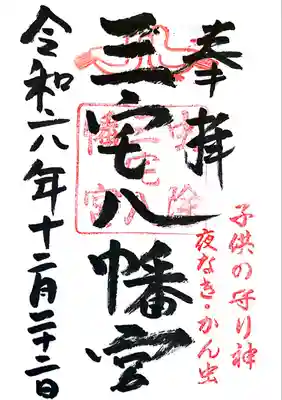 奉拝
子供の守り神
夜なき・かん虫
三宅八幡宮
令和六年十二月二十二日